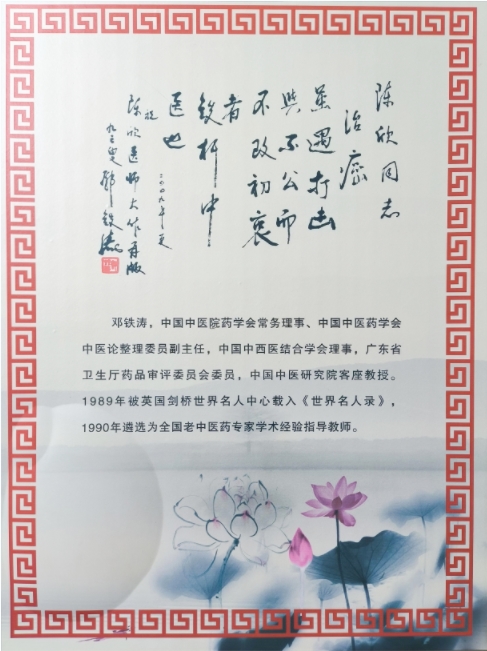 陈欣同志
治癌
虽遇打击
與不公而
不改初衷
者
铁杆中
医也
二〇〇九年夏
祝
陈欣医师大作再版
九三叟邓铁涛
邓铁涛，中国中医院药学会常务理事、中国中医药学会
中医论整理委员副主任，中国中西医结合学会理事，广东省
卫生厅药品审评委员会委员，中国中医研究院客座教授。
1989年被英国剑桥世界名人中心载入《世界名人录》，
1990年遴选为全国老中医药专家学术经验指导教师。